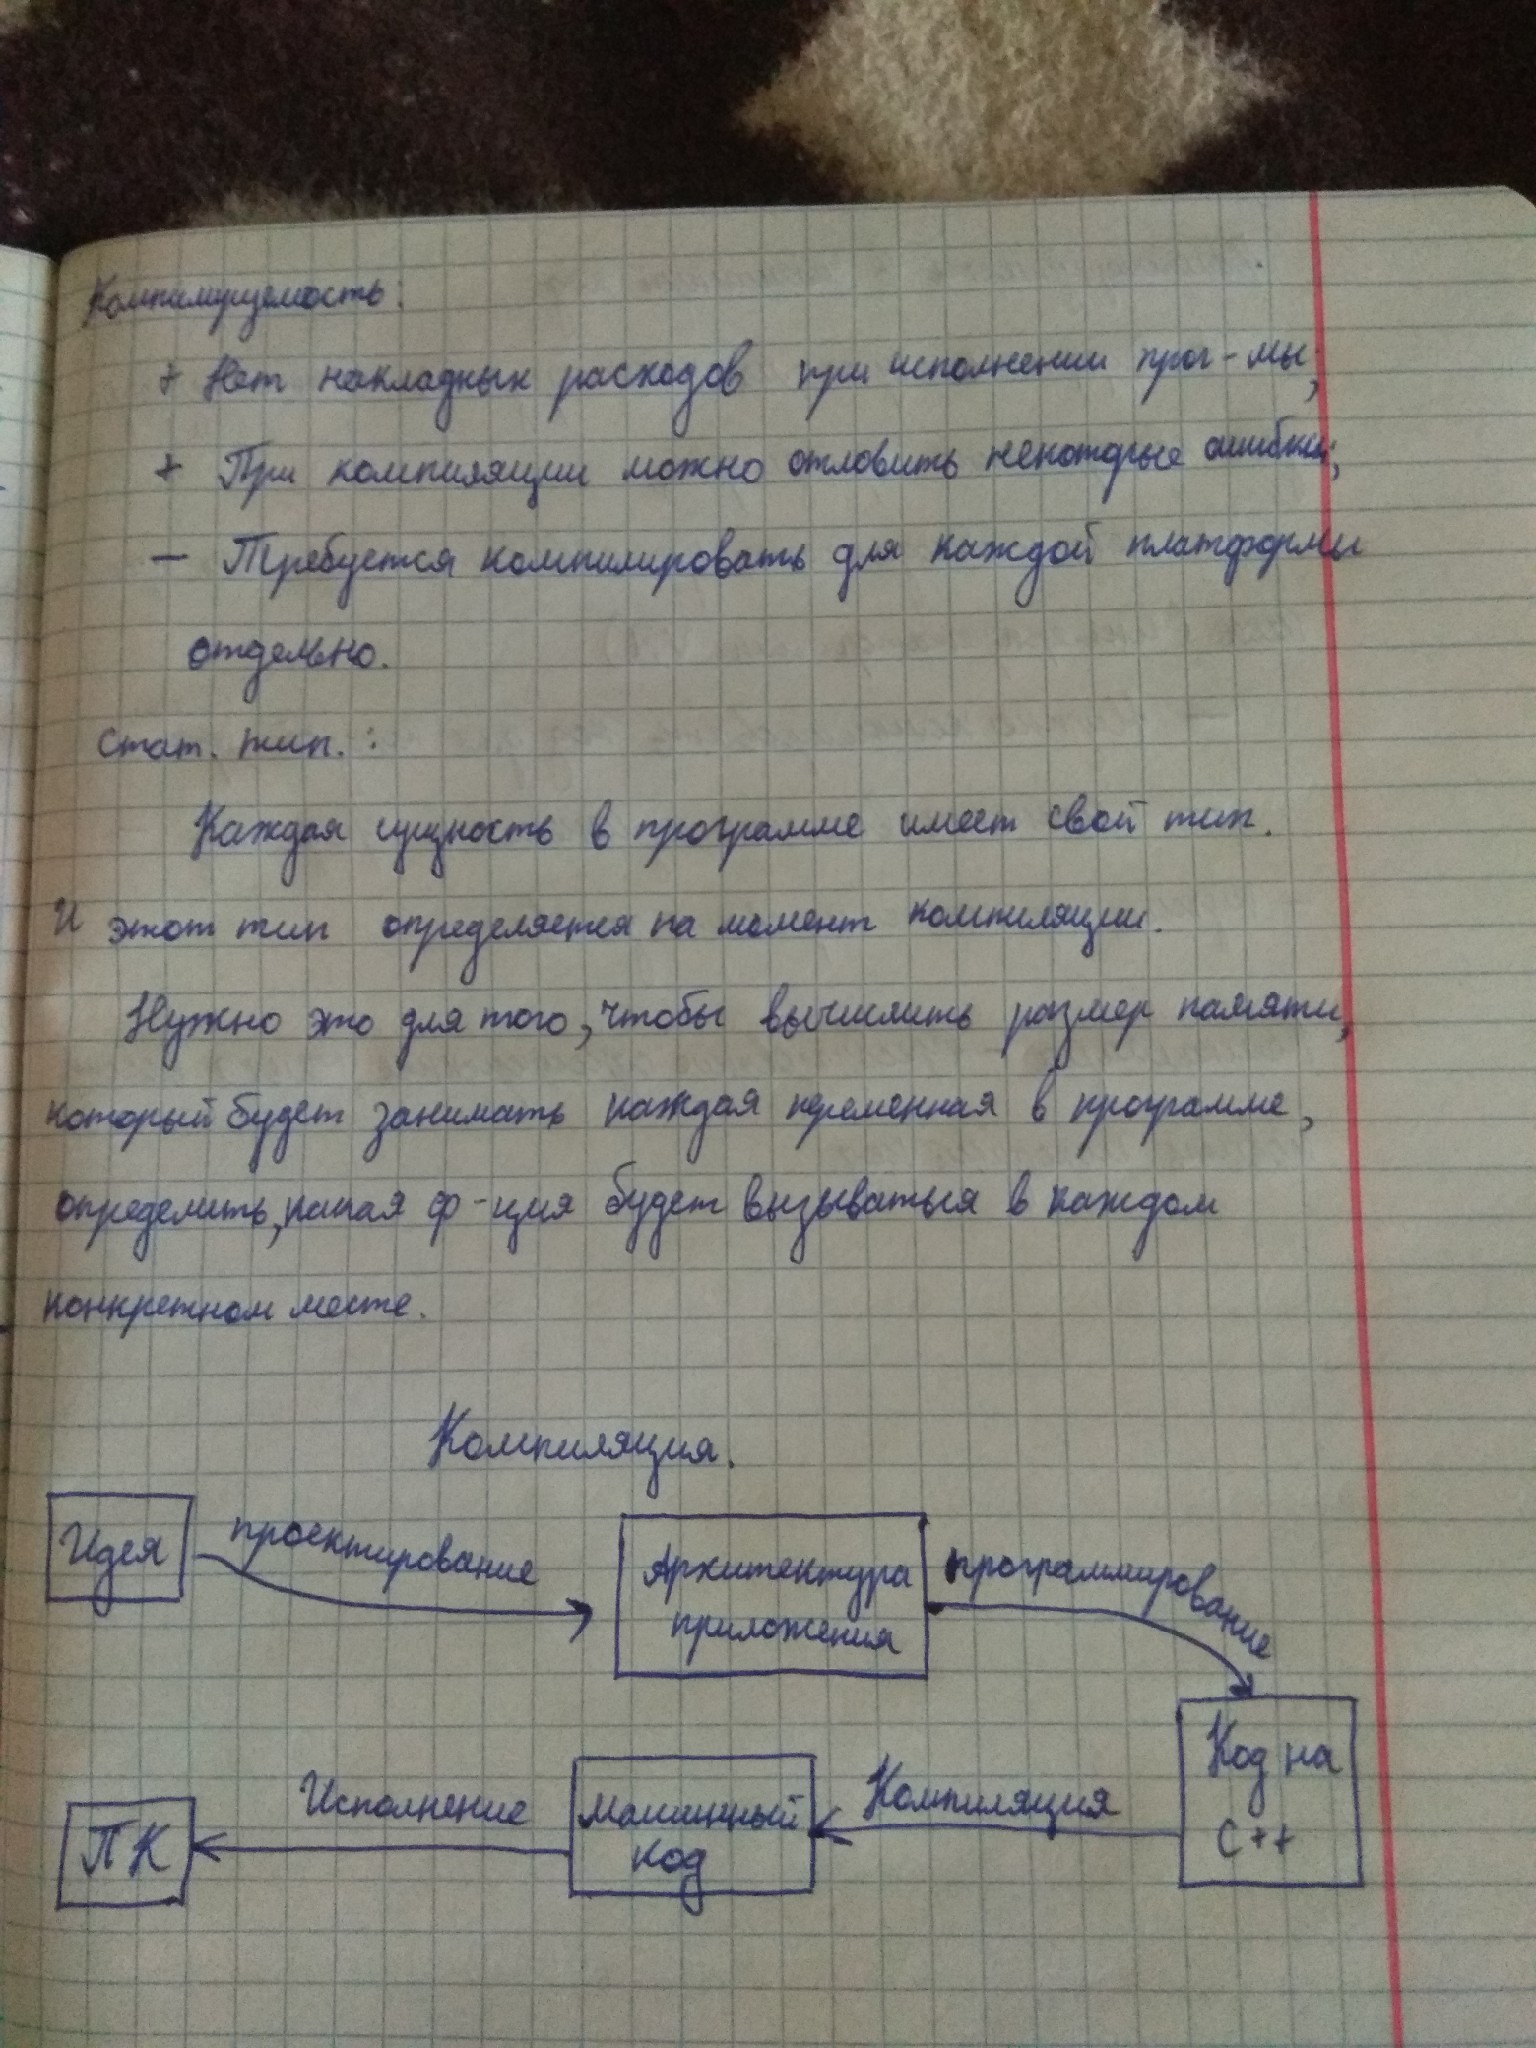 Компилируемость:
+ Нет накладных расходов при исполнении прог-мы;
+ При компиляции можно отловить некоторые ошибки;
— Требуется компилировать для каждой платформы
отдельно.
Стат. тип.:
Каждая сущность в программе имеет свой тип.
И этот тип определяется на момент компиляции.
Нужно это для того, чтобы вычислить размер памяти,
который будет занимать каждая переменная в программе,
определить, какая ф-ция будет вызываться в каждом
конкретном месте.
Компиляция.
Идея
проектирование
Архитектура
приложения
программирование
Код на
C++
Компиляция
Машинный
код
Исполнение
ПК